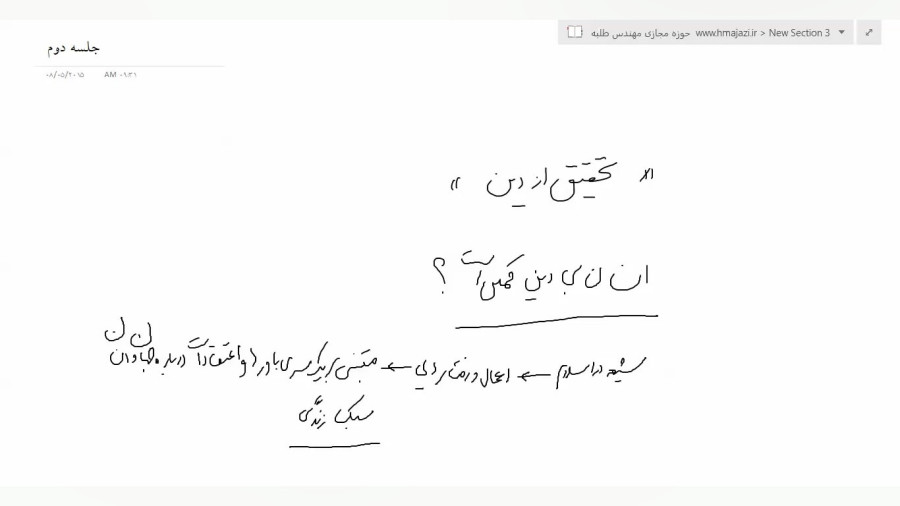 حوزه مجازی مهندس طلبه www.hmajazi.ir > New Section 3
جلسه دوم
۰۸/۰۵/۲۰۱۵ ۰۹:۳۱ AM
« تحقیق از دین »
انسان بی دین کیست؟
شیعه در اسلام ← اعمال و رفتار ← مبتنی بر یک سری باورها و اعتقادات درباره جهان و انسان
سبک زندگی